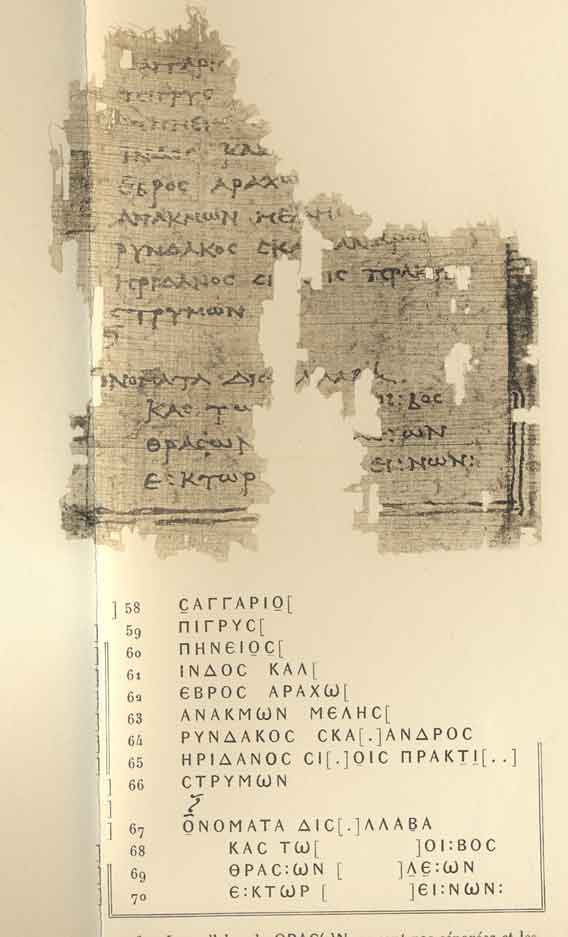 ΕΒΡΟϹ ΑΡΑΧΩ
ΑΝΑΚΜΩΝ ΜΕΛΗ
ΡΥΝΔΑΚΟϹ ϹΚΑ ΑΝΔΡΟϹ
ΗΡΙΔΑΝΟϹ ϹΙ
ϹΤΡΥΜΩΝ
ΟΝΟΜΑΤΑ ΔΙϹ ΛΛΑΒΑ
ΚΑϹ ΤΩ ΟΙ:ΒΟϹ
ΘΡΑϹ:ΩΝ Ε:ΩΝ
Ε:ΚΤΩΡ ΕΙ:ΝΩΝ:
] 58 ϹΑΓΓΑΡΙΟ̣[
59 ΠΙΓΡΥϹ[
60 ΠΗΝΕΙΟ̣Ϲ̣[
61 ΙΝΔΟϹ ΚΑΛ[
62 ΕΒΡΟϹ ΑΡΑΧΩ[
63 ΑΝΑΚΜΩΝ ΜΕΛΗϹ[
64 ΡΥΝΔΑΚΟϹ ϹΚΑ[.]ΑΝΔΡΟϹ
65 ΗΡΙΔΑΝΟϹ ϹΙ[.]ΟΙϹ ΠΡΑΚΤ̣Ι̣[..]
] 66 ϹΤΡΥΜΩΝ
] 67 Ο̣ΝΟΜΑΤΑ ΔΙϹ[.]ΛΛΑΒ̣Α
68 ΚΑϹ ΤΩ[ ]ΟΙ:ΒΟϹ
69 ΘΡΑϹ:ΩΝ [ ]Λ̣Ε̣:ΩΝ
70 Ε:ΚΤΩΡ [ ]ΕΙ:ΝΩΝ: